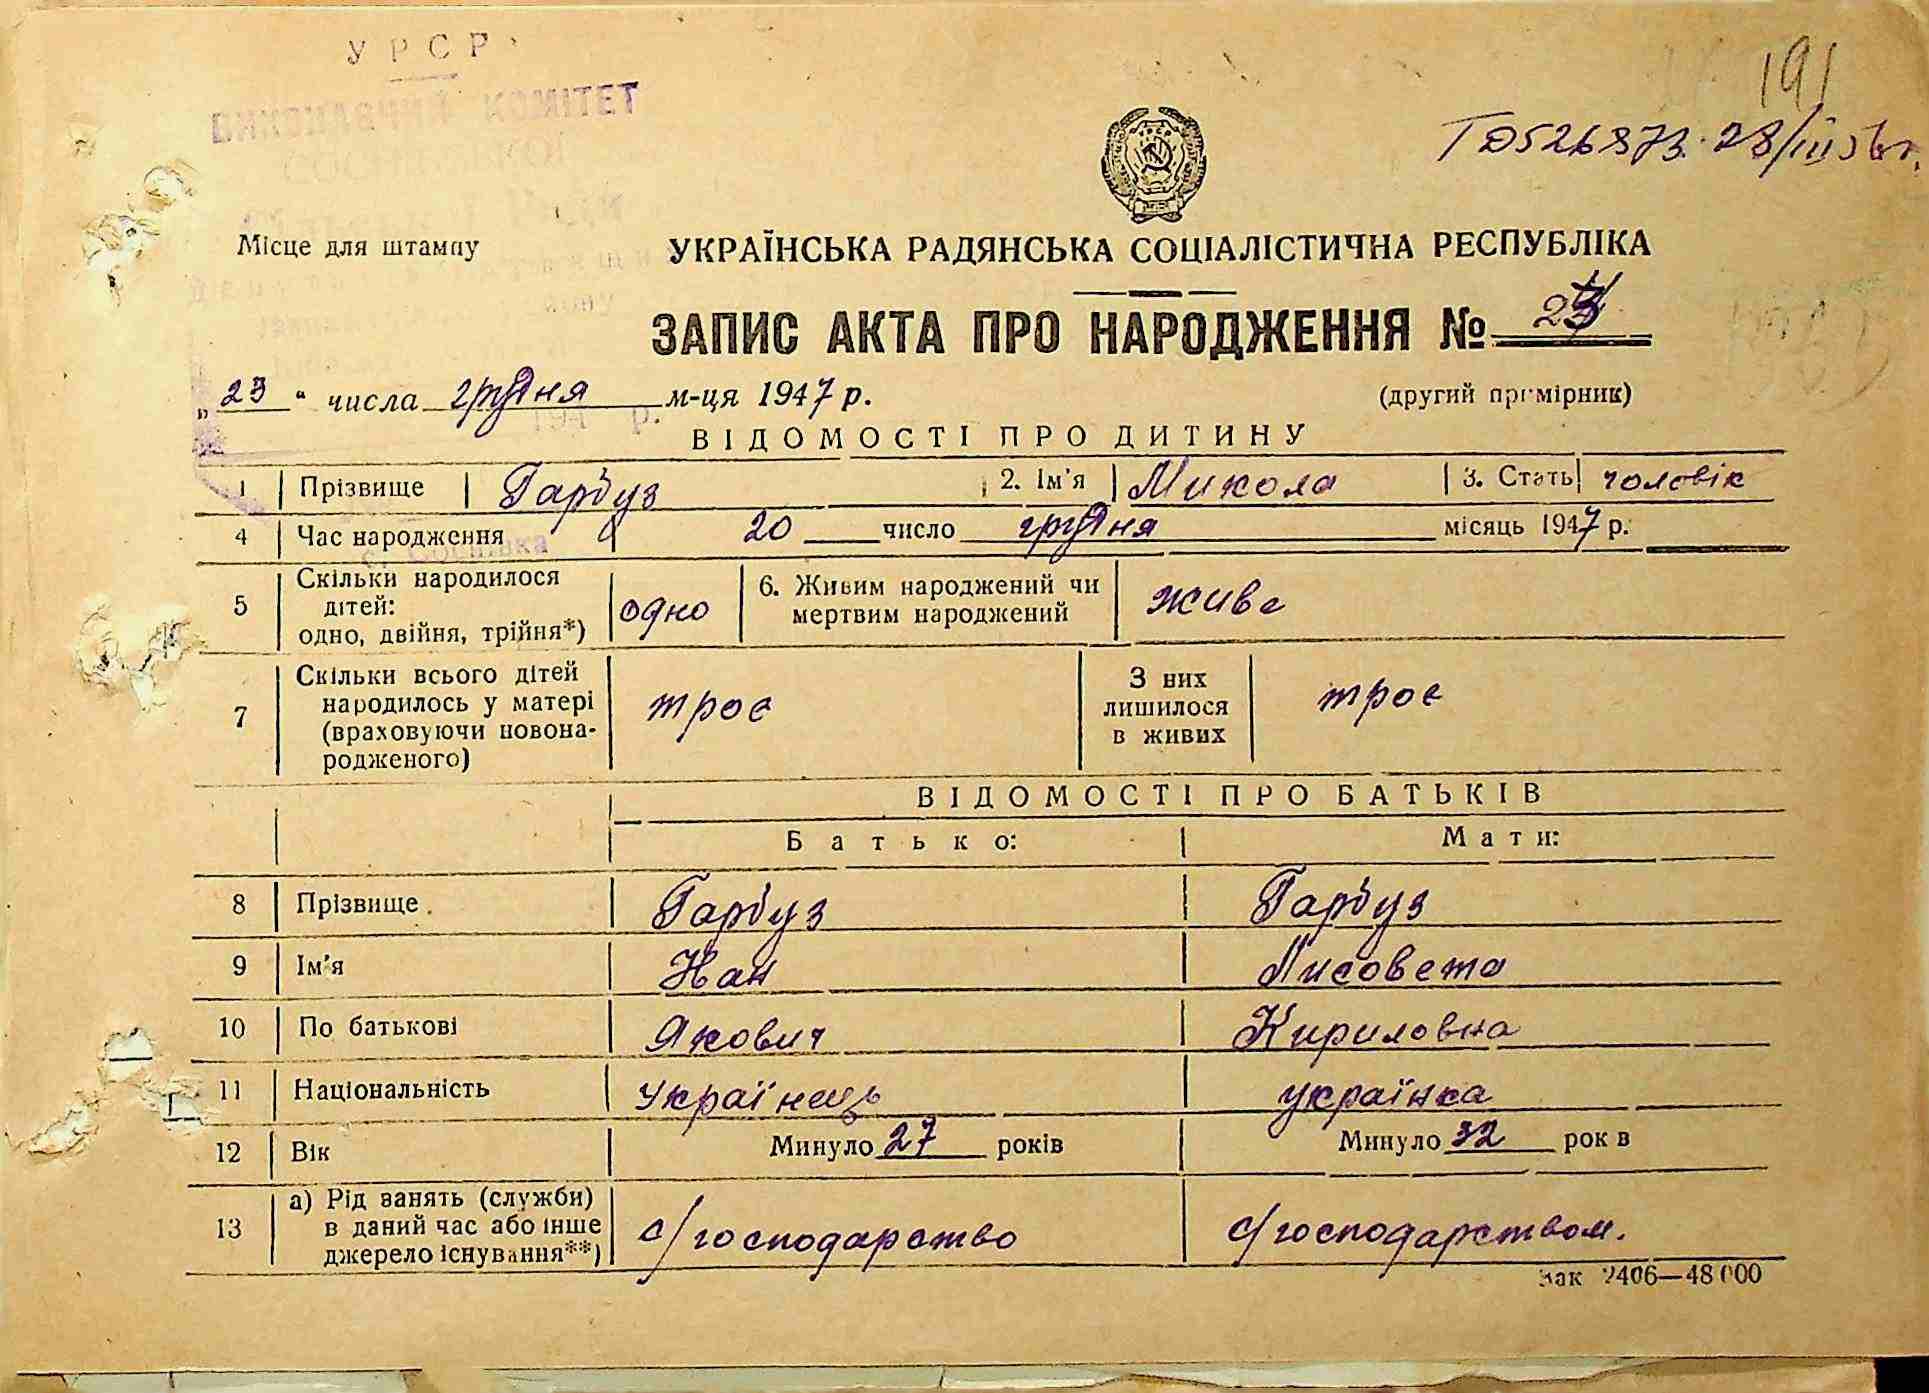 УРСР
191
ВИКОНАВЧИЙ КОМІТЕТ
Місце для штампу
УКРАЇНСЬКА РАДЯНСЬКА СОЦІАЛІСТИЧНА РЕСПУБЛІКА
ЗАПИС АКТА ПРО НАРОДЖЕННЯ №
„23“ числа грудня м-ця 1947 р.
(другий примірник)
194 р.
ВІДОМОСТІ ПРО ДИТИНУ
1 Прізвище Гарбуз 2. Ім'я Микола 3. Стать чоловік
4 Час народження 20 число грудня місяць 1947 р.
с. Соснівка
5 Скільки народилося дітей: одно, двійня, трійня*) одно 6. Живим народжений чи мертвим народжений живе
7 Скільки всього дітей народилось у матері (враховуючи новонародженого) троє З них лишилося в живих троє
ВІДОМОСТІ ПРО БАТЬКІВ
Батько: Мати:
8 Прізвище Гарбуз Гарбуз
9 Ім'я Іван Лисовета
10 По батькові Якович Кириловна
11 Національність Українець українка
12 Вік Минуло 27 років Минуло 32 рок в
13 а) Рід занять (служби) в даний час або інше джерело існування**) с/господарство с/господарством.
Зак 2406—48000